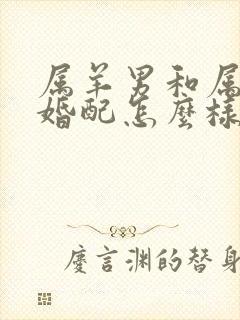 属羊男和属
婚配怎麽样
慶言渊的替身